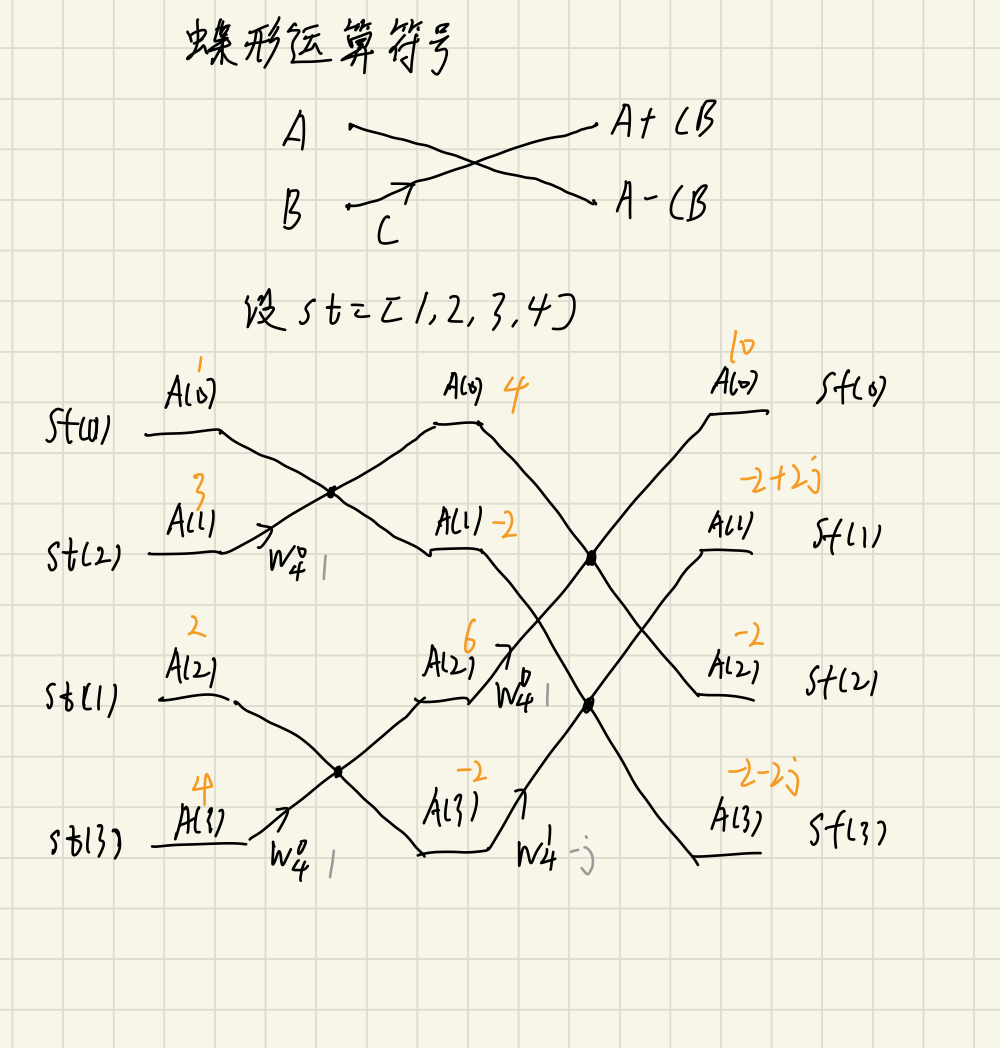 蝶形运算符号
A A+CB
B A-CB
C
设 st=[1,2,3,4]
1 10
A(0) A(0) 4 A(0) Sf(0)
St(0)
3 -2+2j
A(1) A(1) -2 A(1) Sf(1)
St(2) W₄⁰ 1
2 6 -2
A(2) A(2) A(2) Sf(2)
St(1) W₄⁰ 1
4 -2 -2-2j
A(3) A(3) A(3) Sf(3)
St(3) W₄⁰ 1 W₄¹ -j